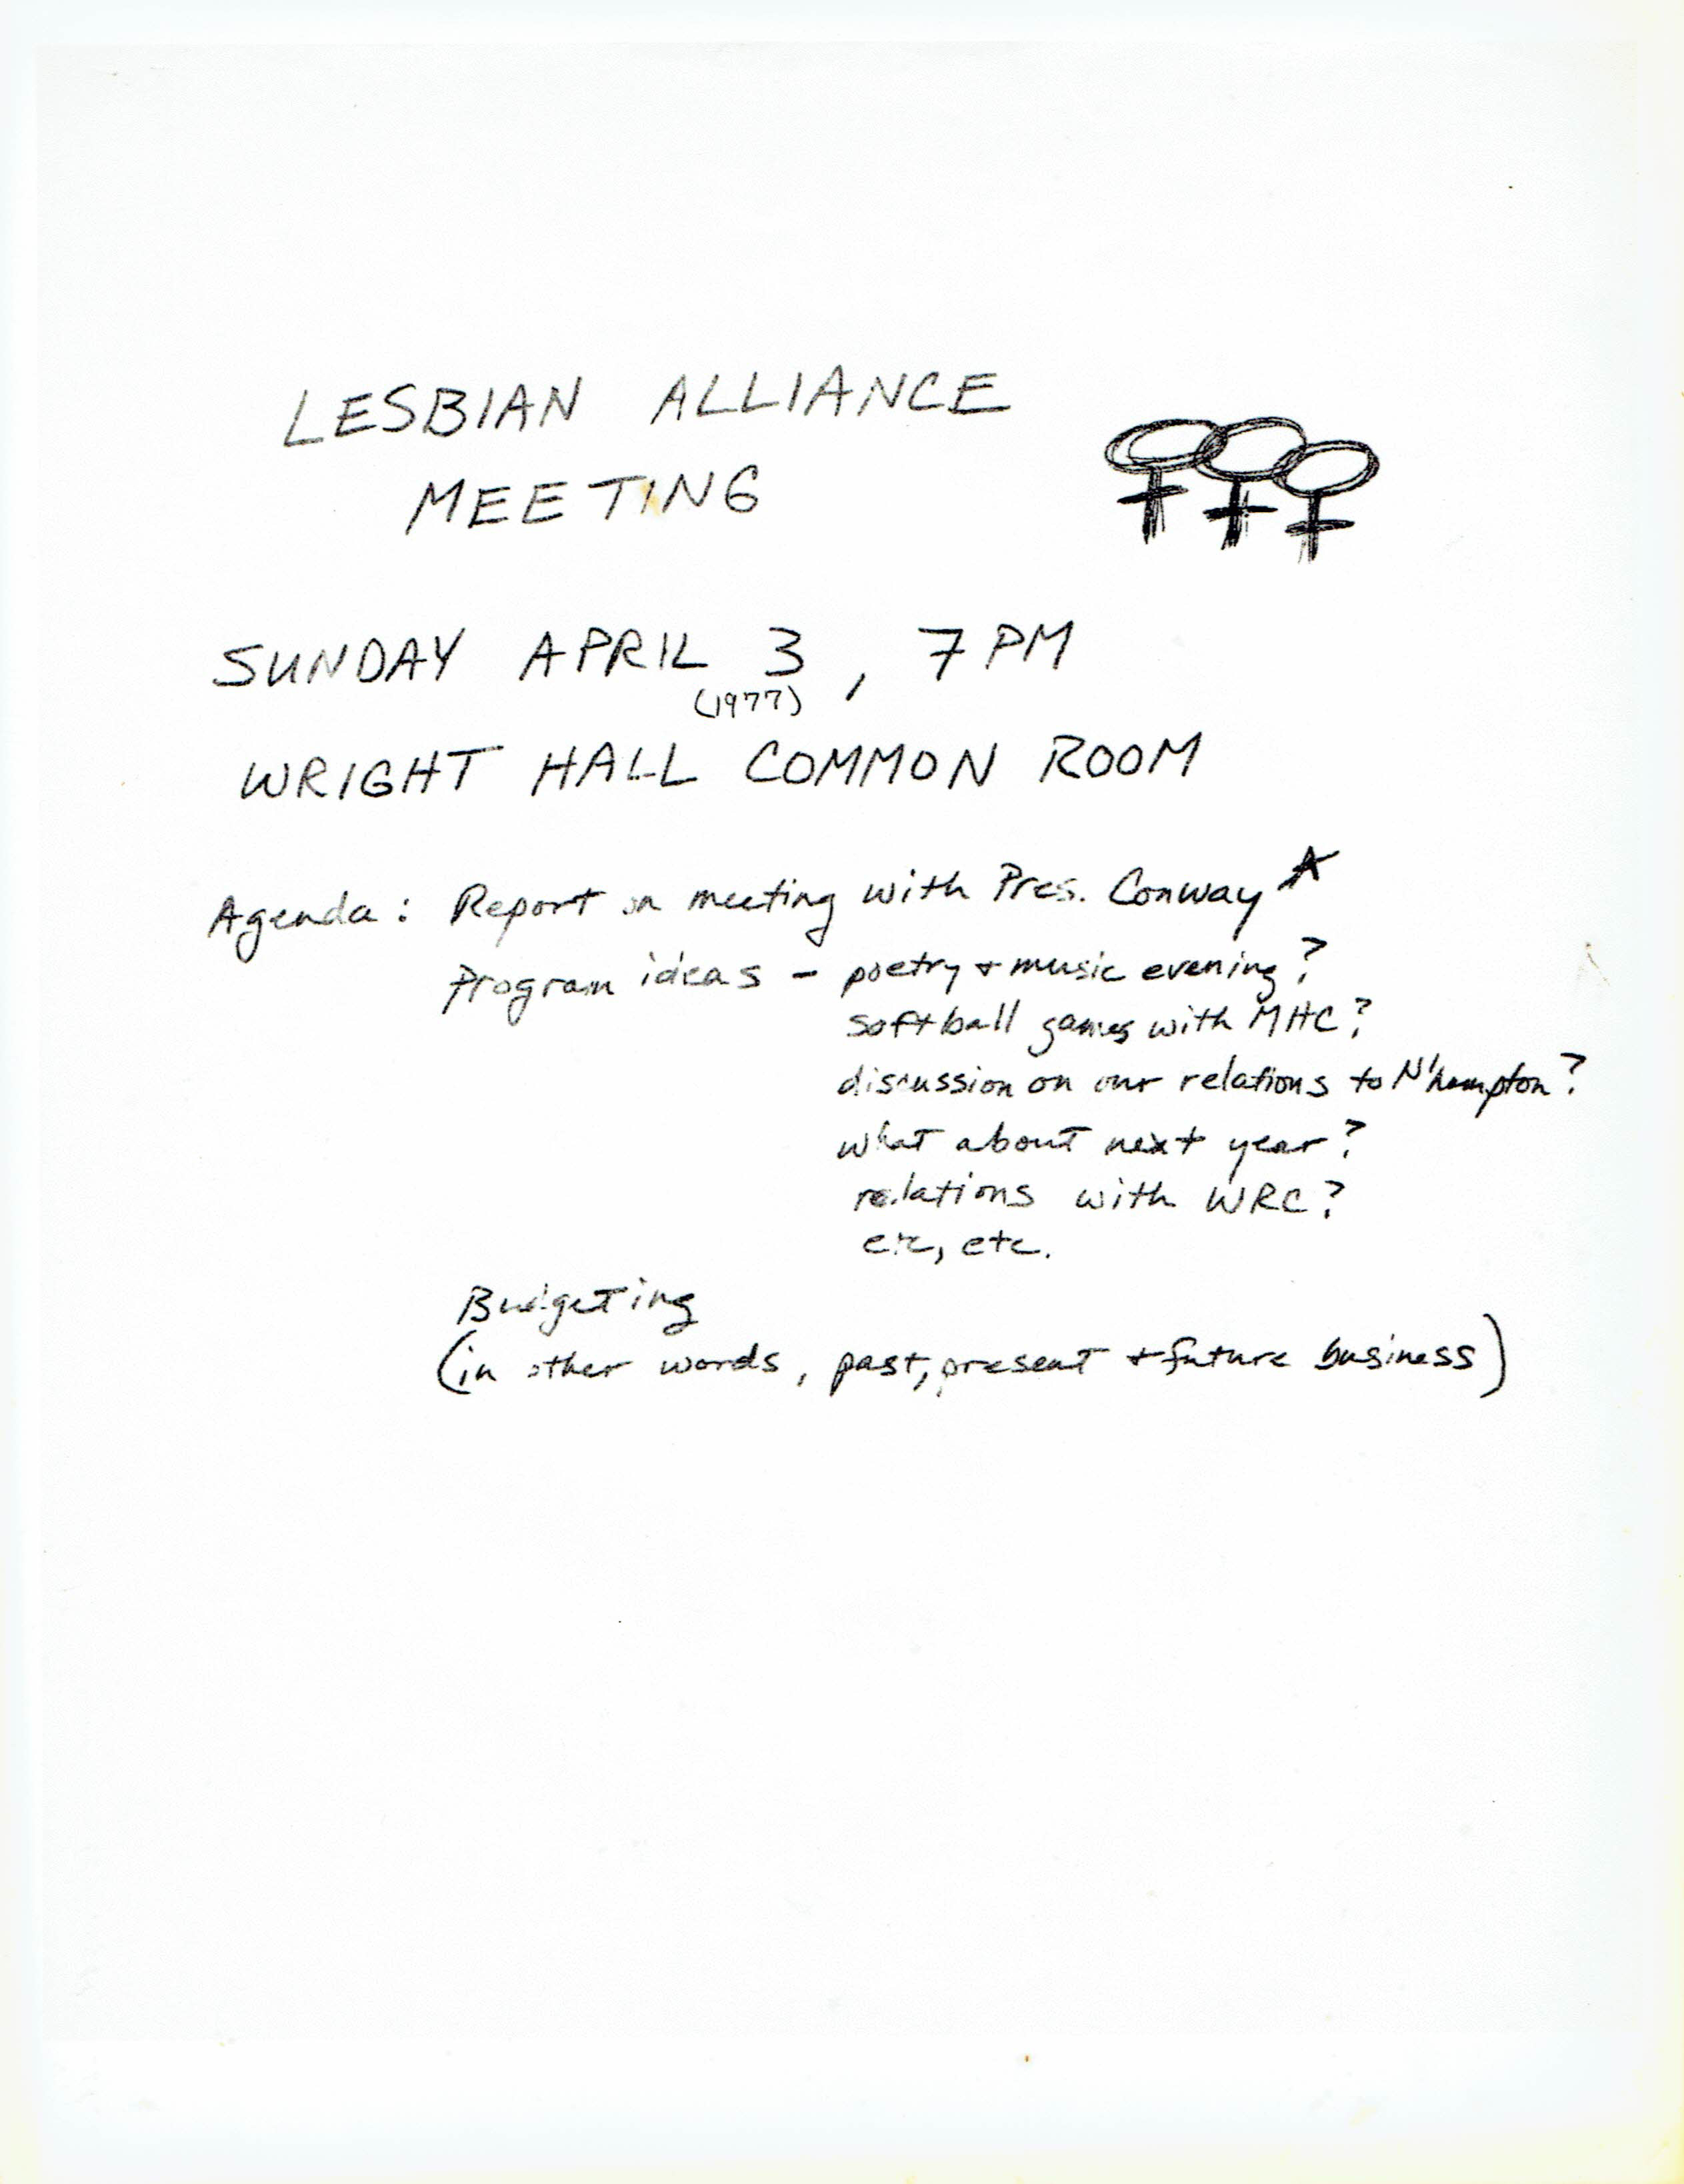 LESBIAN ALLIANCE
MEETING
SUNDAY APRIL 3, 7 PM
(1977)
WRIGHT HALL COMMON ROOM
Agenda: Report on meeting with Pres. Conway ★
Program ideas - poetry + music evening?
softball games with MHC?
discussion on our relations to N'hampton?
what about next year?
relations with WRC?
etc, etc.
Budgeting
(in other words, past, present + future business)